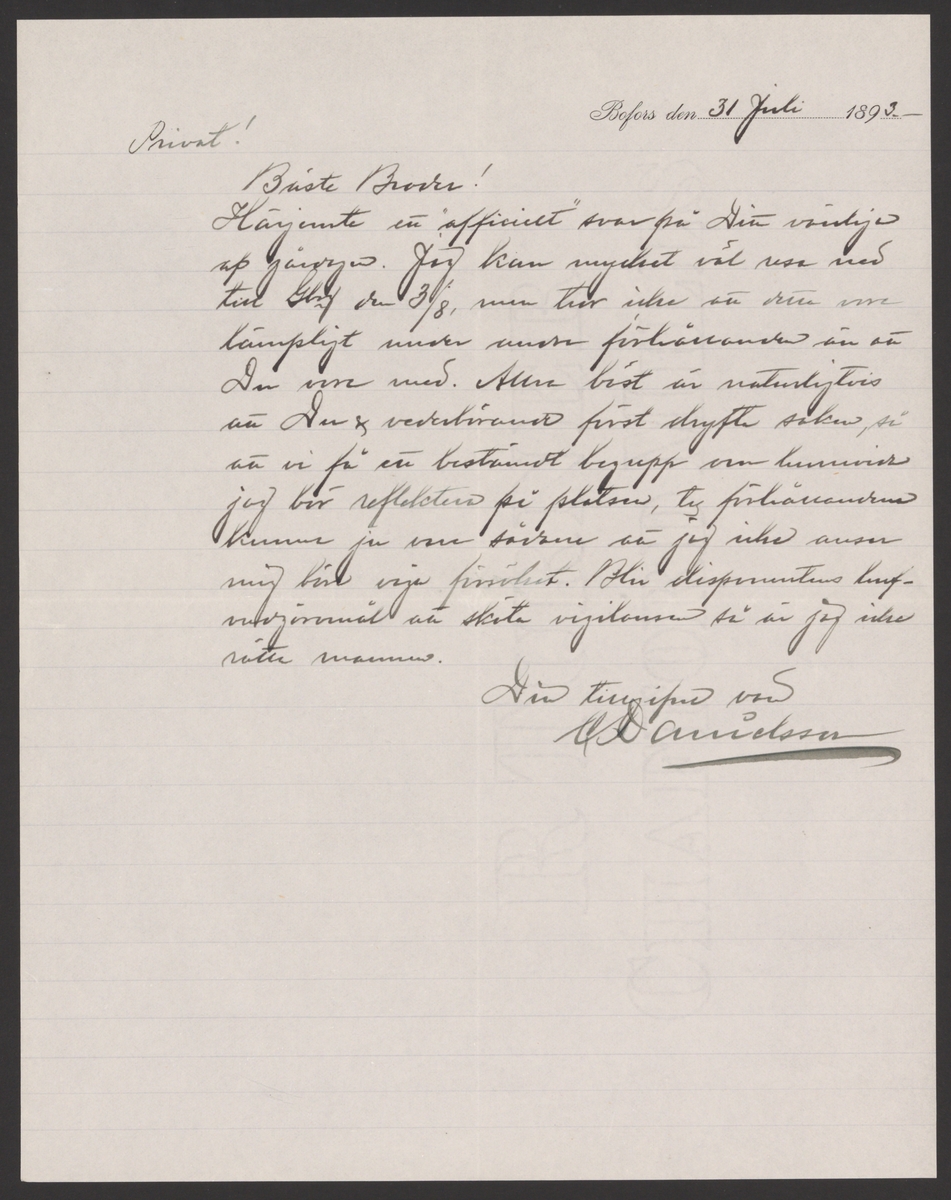 Bofors den 31 Juli 1893.-
Privat!
Bäste Broder!
Härjemte ett "officielt" svar på Ditt vänliga
af gårdagen. Jag kan mycket väl resa ned
till Gbrg den 3/8, men tror icke att detta vore
lämpligt under andra förhållanden än att
Du vore med. Allra bäst är naturligtvis
att Du & vederbörande först dryfta saken, så
att vi få ett bestämdt begrepp om huruvida
jag bör reflektera på platsen, ty förhållandena
kunna ju vara sådana att jag icke anser
mig böra våga försöket. Blir disponentens huf-
vudgöromål att sköta vigilansen så är jag icke
rätte mannen.
Din tillgifne vän
C Danielsson